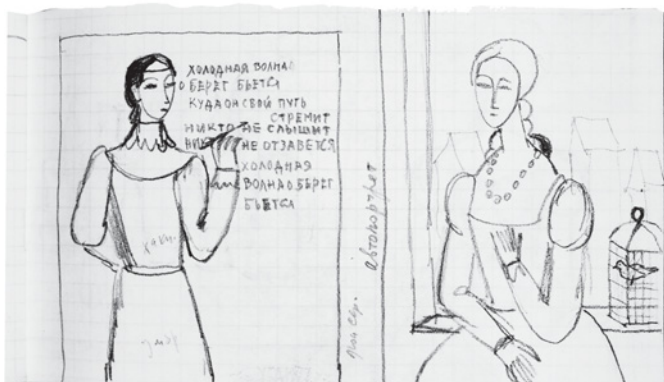 ХОЛОДНАЯ ВОЛНА
О БЕРЕГ БЬЕТСЯ
КУДА ОН СВОЙ ПУТЬ
СТРЕМИТ
НИКТО НЕ СЛЫШИТ
НЕ ОТЗАВЕТСЯ
ХОЛОДНАЯ
ВОЛНА О БЕРЕГ
БЬЕТСЯ
хаки.
автопортрет